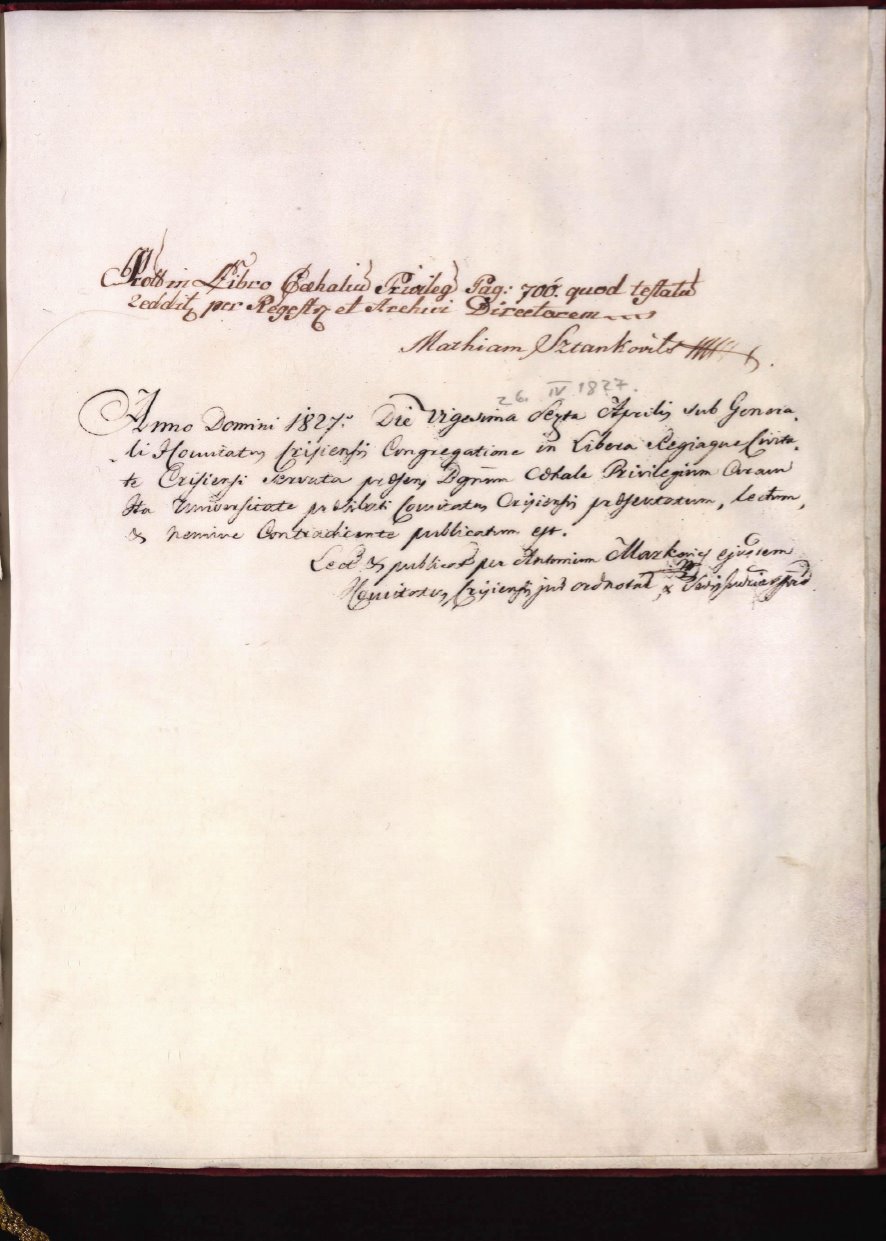 Prott in Libro Cæhaliū Privileg Pag: 700. quod testatū
reddit per Regestr et Archivi Directorem
Mathiam Sztankovits
26. IV 1827.
Anno Domini 1827o Die Vigesima Sexta Aprilis sub Genera-
li Comitatus Crisiensis Congregatione in Libera Regiaque Civita-
te Crisiensi servata præsens Bgnum Cæhale Privilegium Coram
Universitate Comitatus Crisiensis præsentatum, lectum,
& nemine Contradicente publicatum est.
Lect & publicat per Antonium Markovics ejusdem
Comitatus Crisiensis jur ord notar